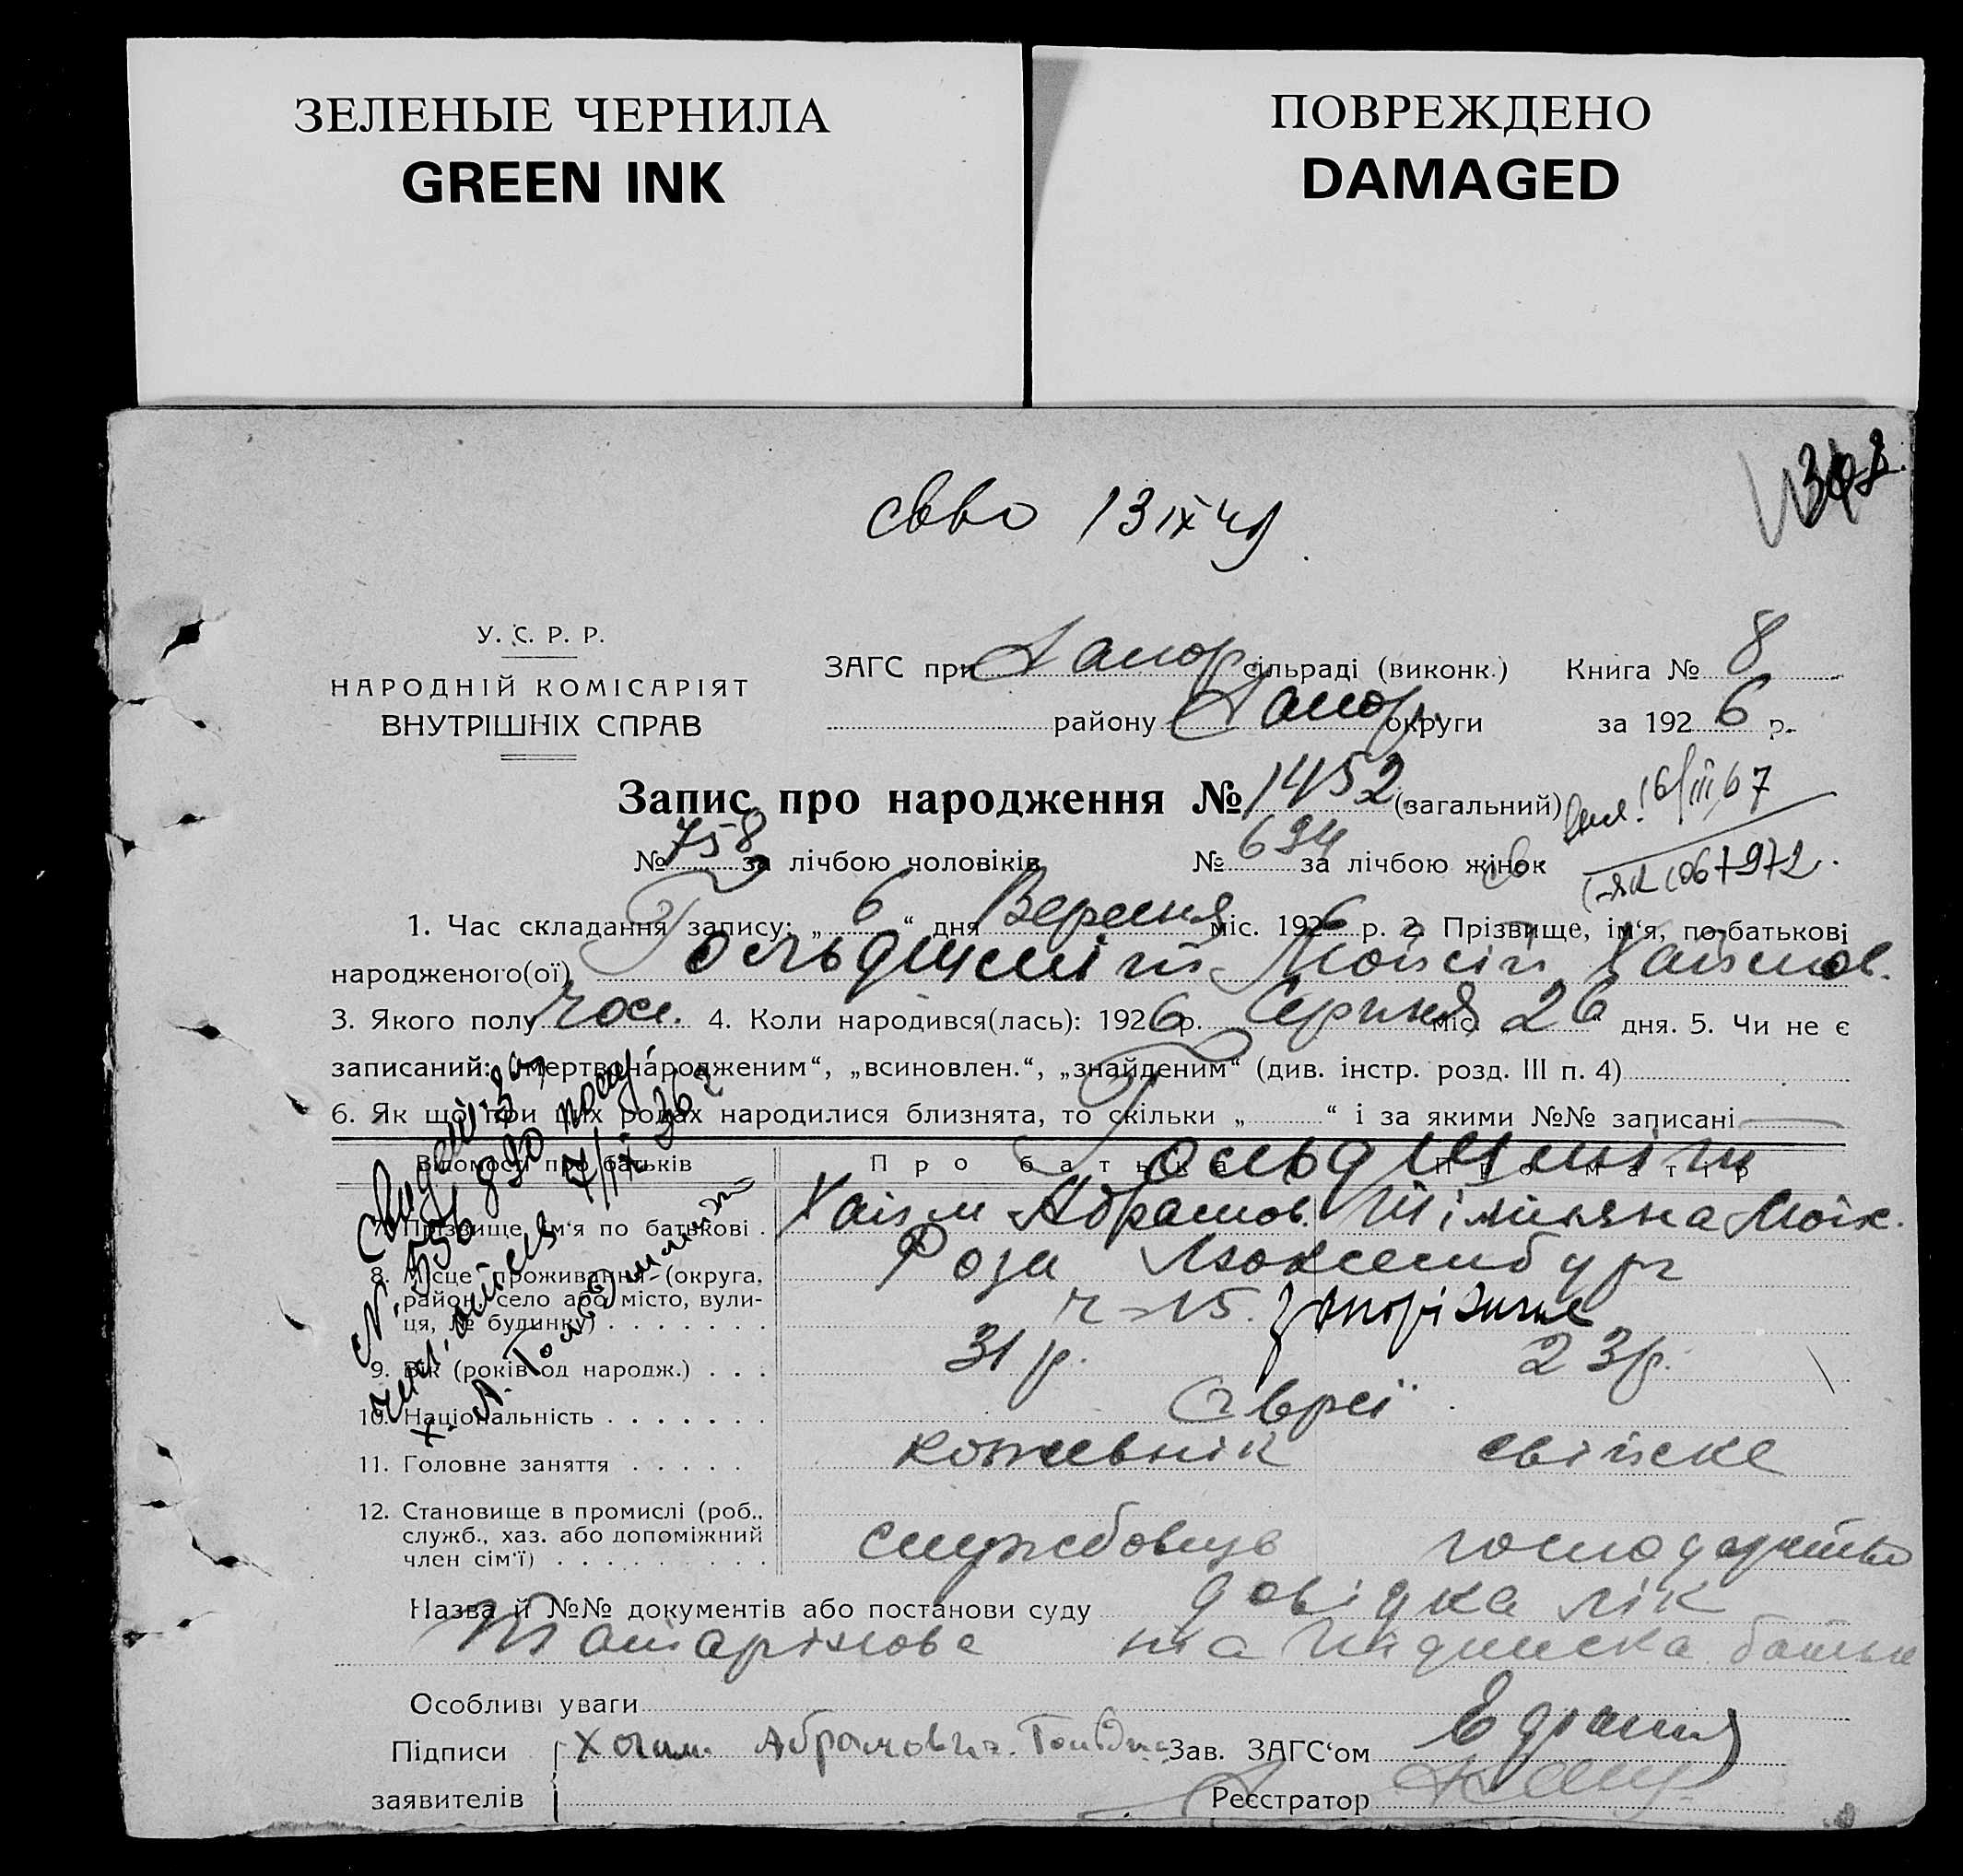 ЗЕЛЕНЫЕ ЧЕРНИЛА
GREEN INK
ПОВРЕЖДЕНО
DAMAGED
свво 13 IX 41
У. С. Р. Р.
НАРОДНІЙ КОМІСАРІЯТ
ВНУТРІШНІХ СПРАВ
ЗАГС при Запор. сільраді (виконк.) Книга № 8
району Запор. округи за 1926 р.
Запис про народження № 1452 (загальний)
16/III 67
№ 758 за лічбою чоловіків № 694 за лічбою жінок
1. Час складання запису: „ 6 “ дня Вересня міс. 1926 р. 2. Прізвище, ім‘я, по-батькові
народженого(ої) Гольдшміт Мойсій Хаймов.
3. Якого полу чол. 4. Коли народився(лась): 1926 р. Серпня міс. 26 дня. 5. Чи не є
записаний: „мертвонародженим“, „всиновлен.“, „знайденим“ (див. інстр. розд. III п. 4)
6. Як що при цих родах народилися близнята, то скільки „ “ і за якими №№ записані
Гольдшміт
Відомості про батьків Про батька Про матір
7. Прізвище ім‘я по батькові . Хаїм Абрамов.
8. Місце проживання (округа, Роза Люксембург
район, село або місто, вули-
ця, № будинку) ч 15. Запоріжжє
9. Вік (років од народж.) . . . 31 р. 23 р.
10. Національність Євреї
11. Головне заняття кожевнік свійске
12. Становище в промислі (роб.,
служб., хаз. або допоміжний
член сім‘ї) службовець господарство
Назва й №№ документів або постанови суду довідка лік
та підписка батька
Особливі уваги
Підписи Хаим Абрамович Зав. ЗАГС‘ом
заявителів Реєстратор